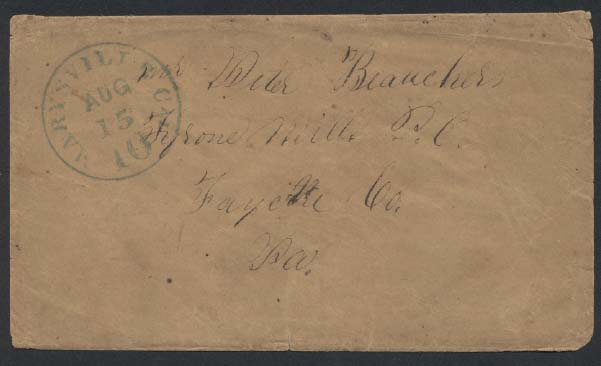 MARYSVILLE CAL.
AUG
15
10
Mr Peter Beaucher
Tyrone Mills P.O.
Fayette Co.
Pa.